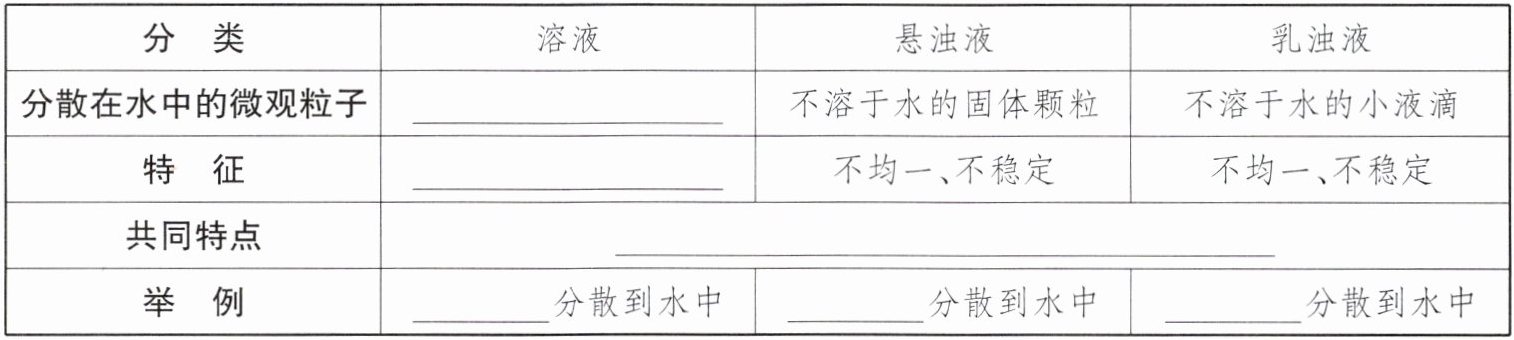 分 类 溶液 悬浊液 乳浊液
分散在水中的微观粒子 ________ 不溶于水的固体颗粒 不溶于水的小液滴
特 征 ________ 不均一、不稳定 不均一、不稳定
共同特点 ________
举 例 ____分散到水中 ____分散到水中 ____分散到水中